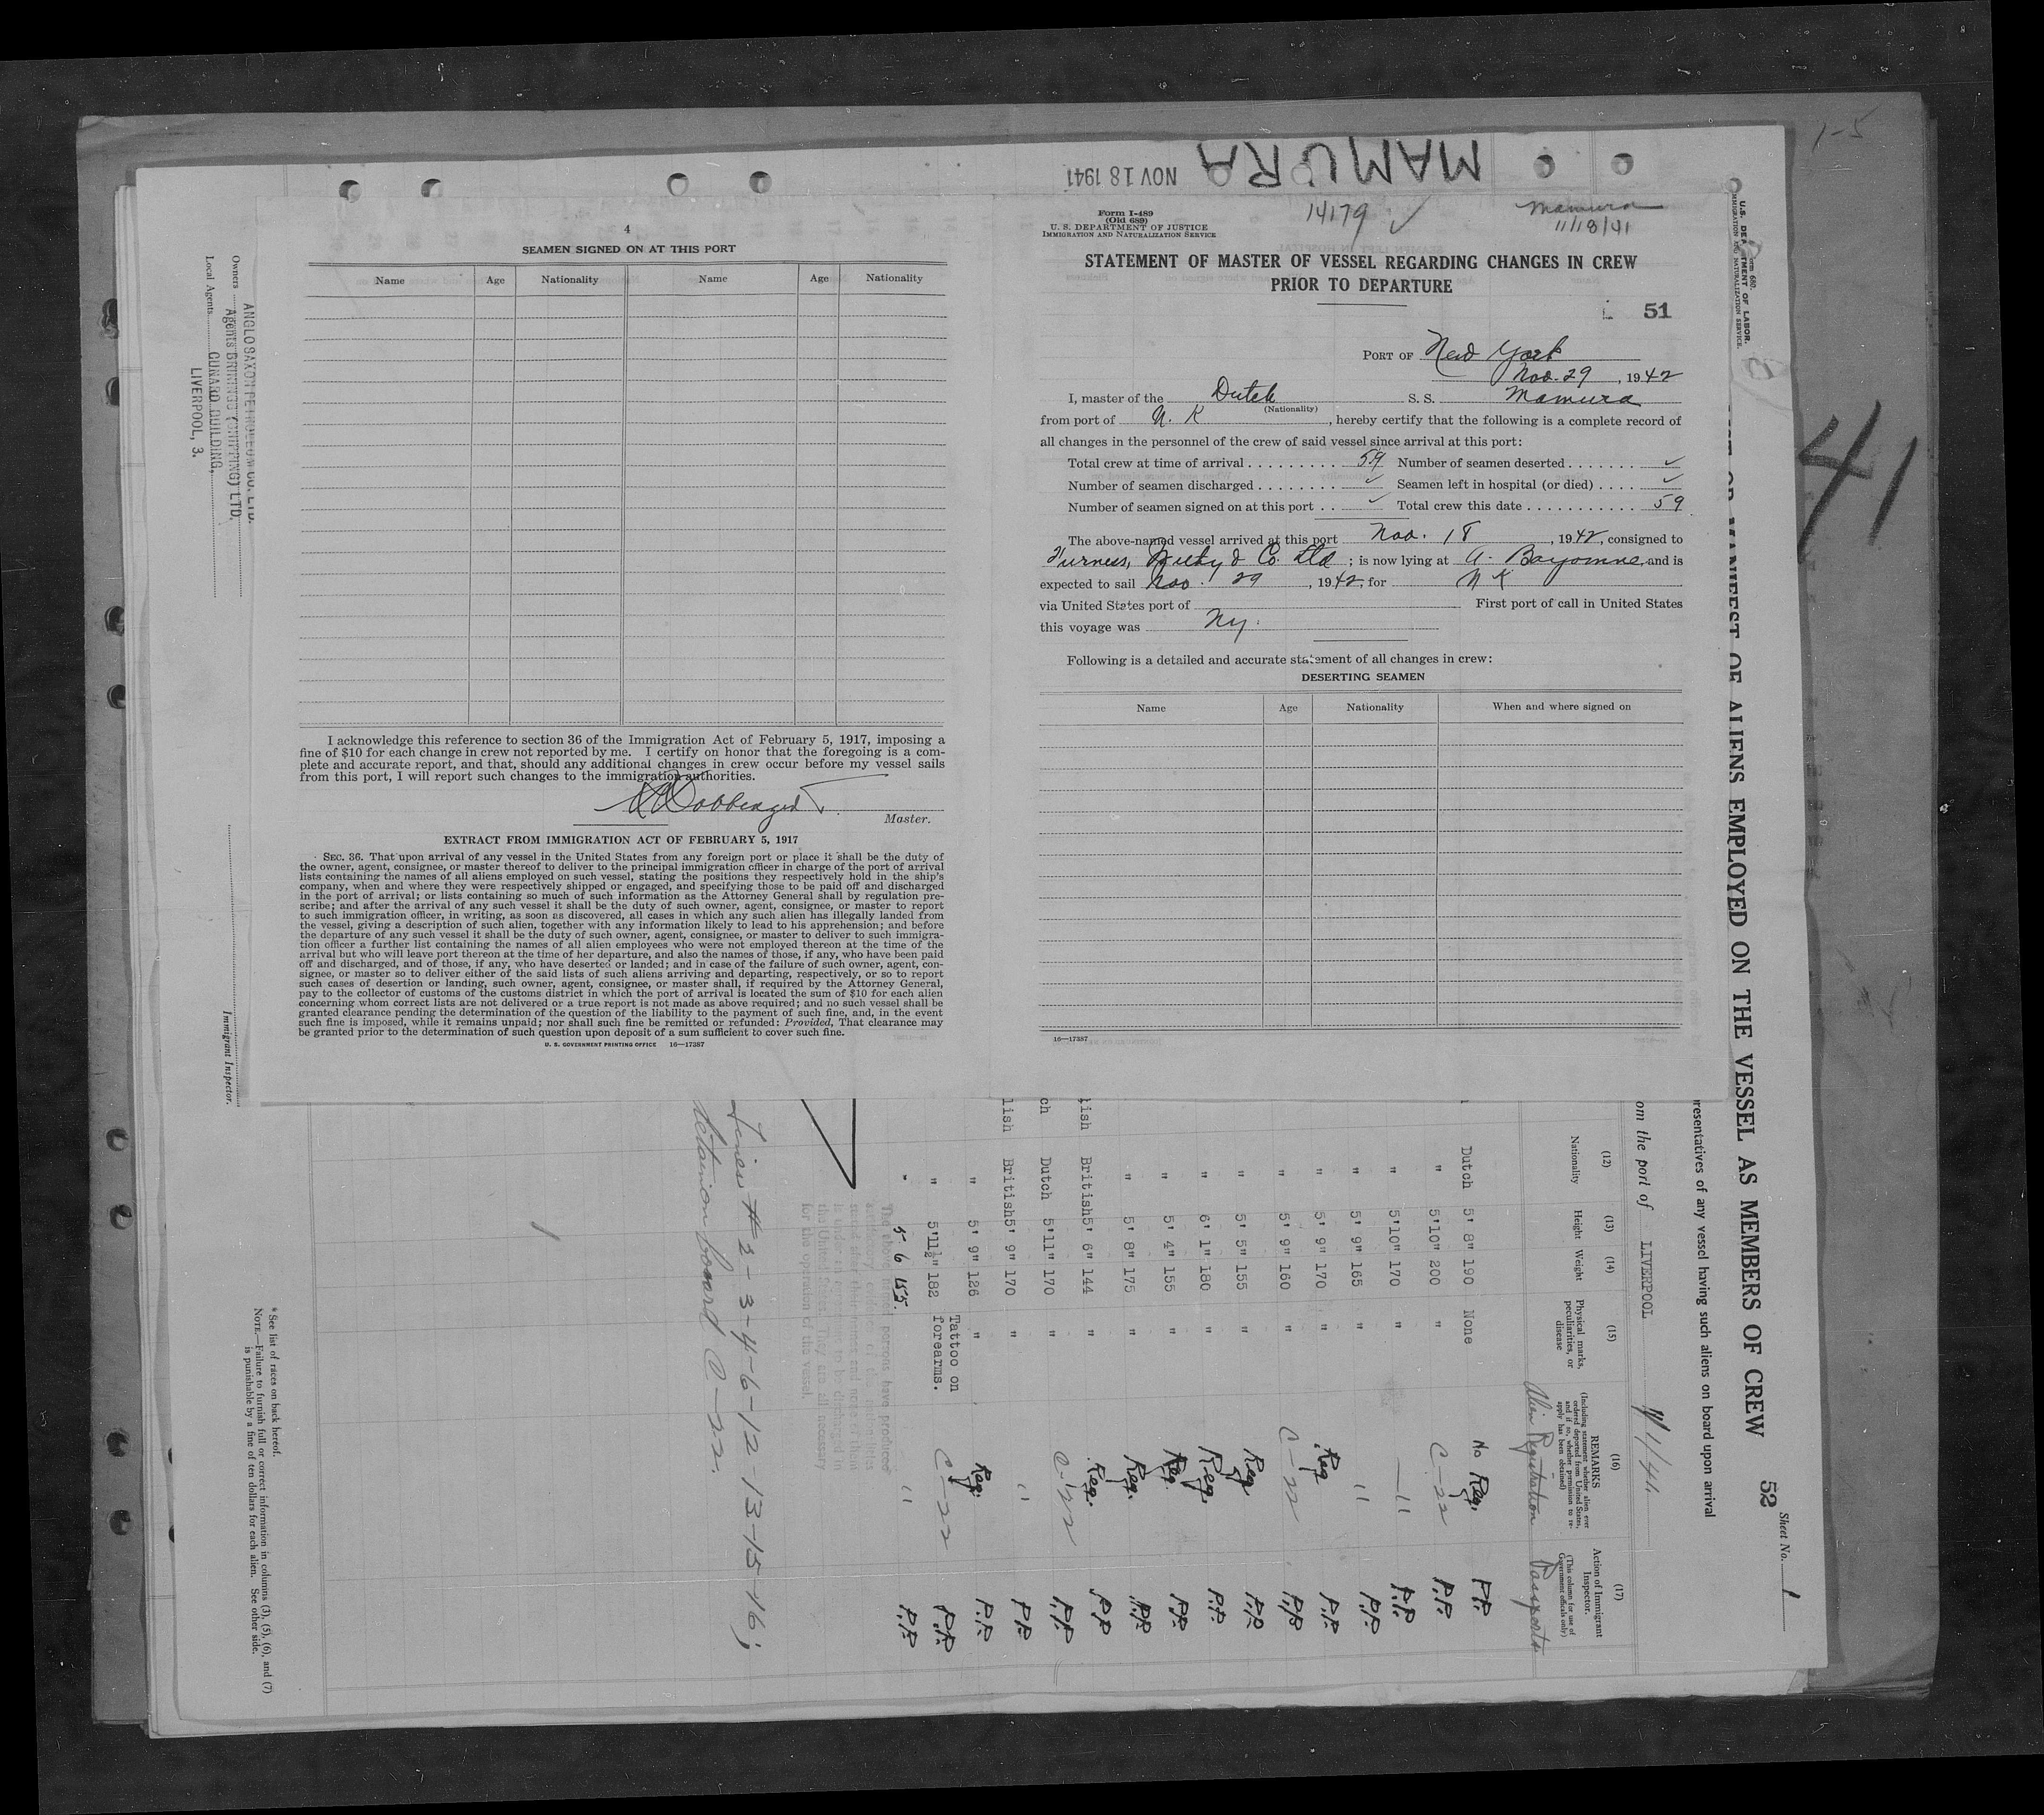 1-5
MAMURA
NOV 18 1941
41
4
SEAMEN SIGNED ON AT THIS PORT
Name Age Nationality Name Age Nationality
I acknowledge this reference to section 36 of the Immigration Act of February 5, 1917, imposing a
fine of $10 for each change in crew not reported by me. I certify on honor that the foregoing is a com-
plete and accurate report, and that, should any additional changes in crew occur before my vessel sails
from this port, I will report such changes to the immigration authorities.
Master.
EXTRACT FROM IMMIGRATION ACT OF FEBRUARY 5, 1917
SEC. 36. That upon arrival of any vessel in the United States from any foreign port or place it shall be the duty of
the owner, agent, consignee, or master thereof to deliver to the principal immigration officer in charge of the port of arrival
lists containing the names of all aliens employed on such vessel, stating the positions they respectively hold in the ship's
company, when and where they were respectively shipped or engaged, and specifying those to be paid off and discharged
in the port of arrival; or lists containing so much of such information as the Attorney General shall by regulation pre-
scribe; and after the arrival of any such vessel it shall be the duty of such owner, agent, consignee, or master to report
to such immigration officer, in writing, as soon as discovered, all cases in which any such alien has illegally landed from
the vessel, giving a description of such alien, together with any information likely to lead to his apprehension; and before
the departure of any such vessel it shall be the duty of such owner, agent, consignee, or master to deliver to such immigra-
tion officer a further list containing the names of all alien employees who were not employed thereon at the time of the
arrival but who will leave port thereon at the time of her departure, and also the names of those, if any, who have been paid
off and discharged, and of those, if any, who have deserted or landed; and in case of the failure of such owner, agent, con-
signee, or master so to deliver either of the said lists of such aliens arriving and departing, respectively, or so to report
such cases of desertion or landing, such owner, agent, consignee, or master shall, if required by the Attorney General,
pay to the collector of customs of the customs district in which the port of arrival is located the sum of $10 for each alien
concerning whom correct lists are not delivered or a true report is not made as above required; and no such vessel shall be
granted clearance pending the determination of the question of the liability to the payment of such fine, and, in the event
such fine is imposed, while it remains unpaid; nor shall such fine be remitted or refunded: Provided, That clearance may
be granted prior to the determination of such question upon deposit of a sum sufficient to cover such fine.
U. S. GOVERNMENT PRINTING OFFICE 16—17387
Form I-489
(Old 689)
U. S. DEPARTMENT OF JUSTICE
IMMIGRATION AND NATURALIZATION SERVICE
14179 ✓
Mamura
11/18/41
STATEMENT OF MASTER OF VESSEL REGARDING CHANGES IN CREW
PRIOR TO DEPARTURE
51
PORT OF New York
Nov. 29, 1942
I, master of the Dutch S. S. Mamura
(Nationality)
from port of U. K, hereby certify that the following is a complete record of
all changes in the personnel of the crew of said vessel since arrival at this port:
Total crew at time of arrival 59 Number of seamen deserted ✓
Number of seamen discharged ✓ Seamen left in hospital (or died) ✓
Number of seamen signed on at this port ✓ Total crew this date 59
The above-named vessel arrived at this port Nov. 18, 1942, consigned to
Furness, Withy & Co. Ltd; is now lying at Bayonne, and is
expected to sail Nov. 29, 1942, for U K
via United States port of First port of call in United States
this voyage was Ny.
Following is a detailed and accurate statement of all changes in crew:
DESERTING SEAMEN
Name Age Nationality When and where signed on
16—17387
Sheet No. 1
52
U.S. DEPARTMENT OF LABOR.
IMMIGRATION AND NATURALIZATION SERVICE.
MANIFEST OF ALIENS EMPLOYED ON THE VESSEL AS MEMBERS OF CREW
resentatives of any vessel having such aliens on board upon arrival
om the port of LIVERPOOL
(12) (13) (14) (15) (16) (17)
Nationality Height Weight Physical marks, peculiarities, or disease
REMARKS
(Including statement whether alien ever ordered deported from United States, and if so, whether permission to re-apply has been obtained)
Action of Immigrant Inspector.
(This column for use of Government officials only)
Alien Registration Passports
Dutch 5' 8" 190 None No Reg. P.P.
" 5'10" 200 " C-22 P.P.
" 5'10" 170 " " P.P.
" 5' 9" 165 " " P.P.
" 5' 9" 170 " Reg P.P.
" 5' 9" 160 " C-22 P.P.
" 5' 5" 155 " Reg P.P.
" 6' 1" 180 " Reg. P.P.
" 5' 4" 155 " Reg. P.P.
" 5' 8" 175 " Reg. P.P.
lish British 5' 6" 144 " Reg. P.P.
ch Dutch 5'11" 170 " C-22 P.P.
lish British 5' 9" 170 " " P.P.
" 5' 9" 126 " Reg. P.P.
" 5'11½" 182 Tattoo on forearms. C-22 P.P.
" 5 6 155. " P.P.
# 2-3-4-6-12-13-15-16;
board C-22.
Owners ANGLO SAXON PETROLEUM CO. LTD.
Local Agents
CUNARD BUILDING,
LIVERPOOL, 3.
Immigrant Inspector.
* See list of races on back hereof.
NOTE.—Failure to furnish full or correct information in columns (3), (5), (6), and (7)
is punishable by a fine of ten dollars for each alien. See other side.